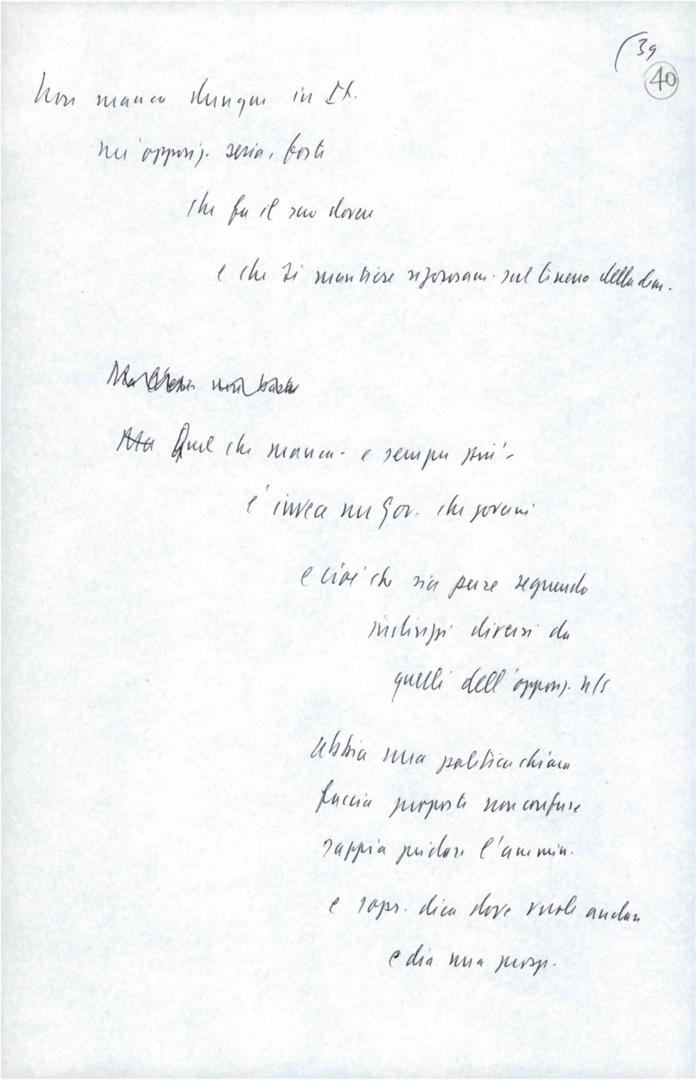 (39
40
Non manca dunque in It.
un'opposiz. seria, forte
che fa il suo dovere
e che si mantiene rigorosam. sul terreno della dem.
Ma non basta
Ma Quel che manca - e sempre più -
è invece un Gov. che governi
e cioè che sia pure seguendo
indirizzi diversi da
quelli dell'opposiz. n/s
abbia una politica chiara
faccia proposte non confuse
sappia guidare l'ammin.
e sopr. dica dove vuole andare
e dia una prosp.